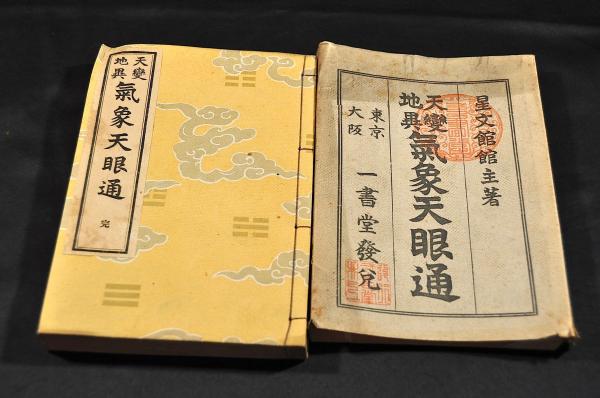 天變
地異
氣象天眼通
完
星文館館主著
天變
地異
氣象天眼通
東京
大阪
一書堂發兌